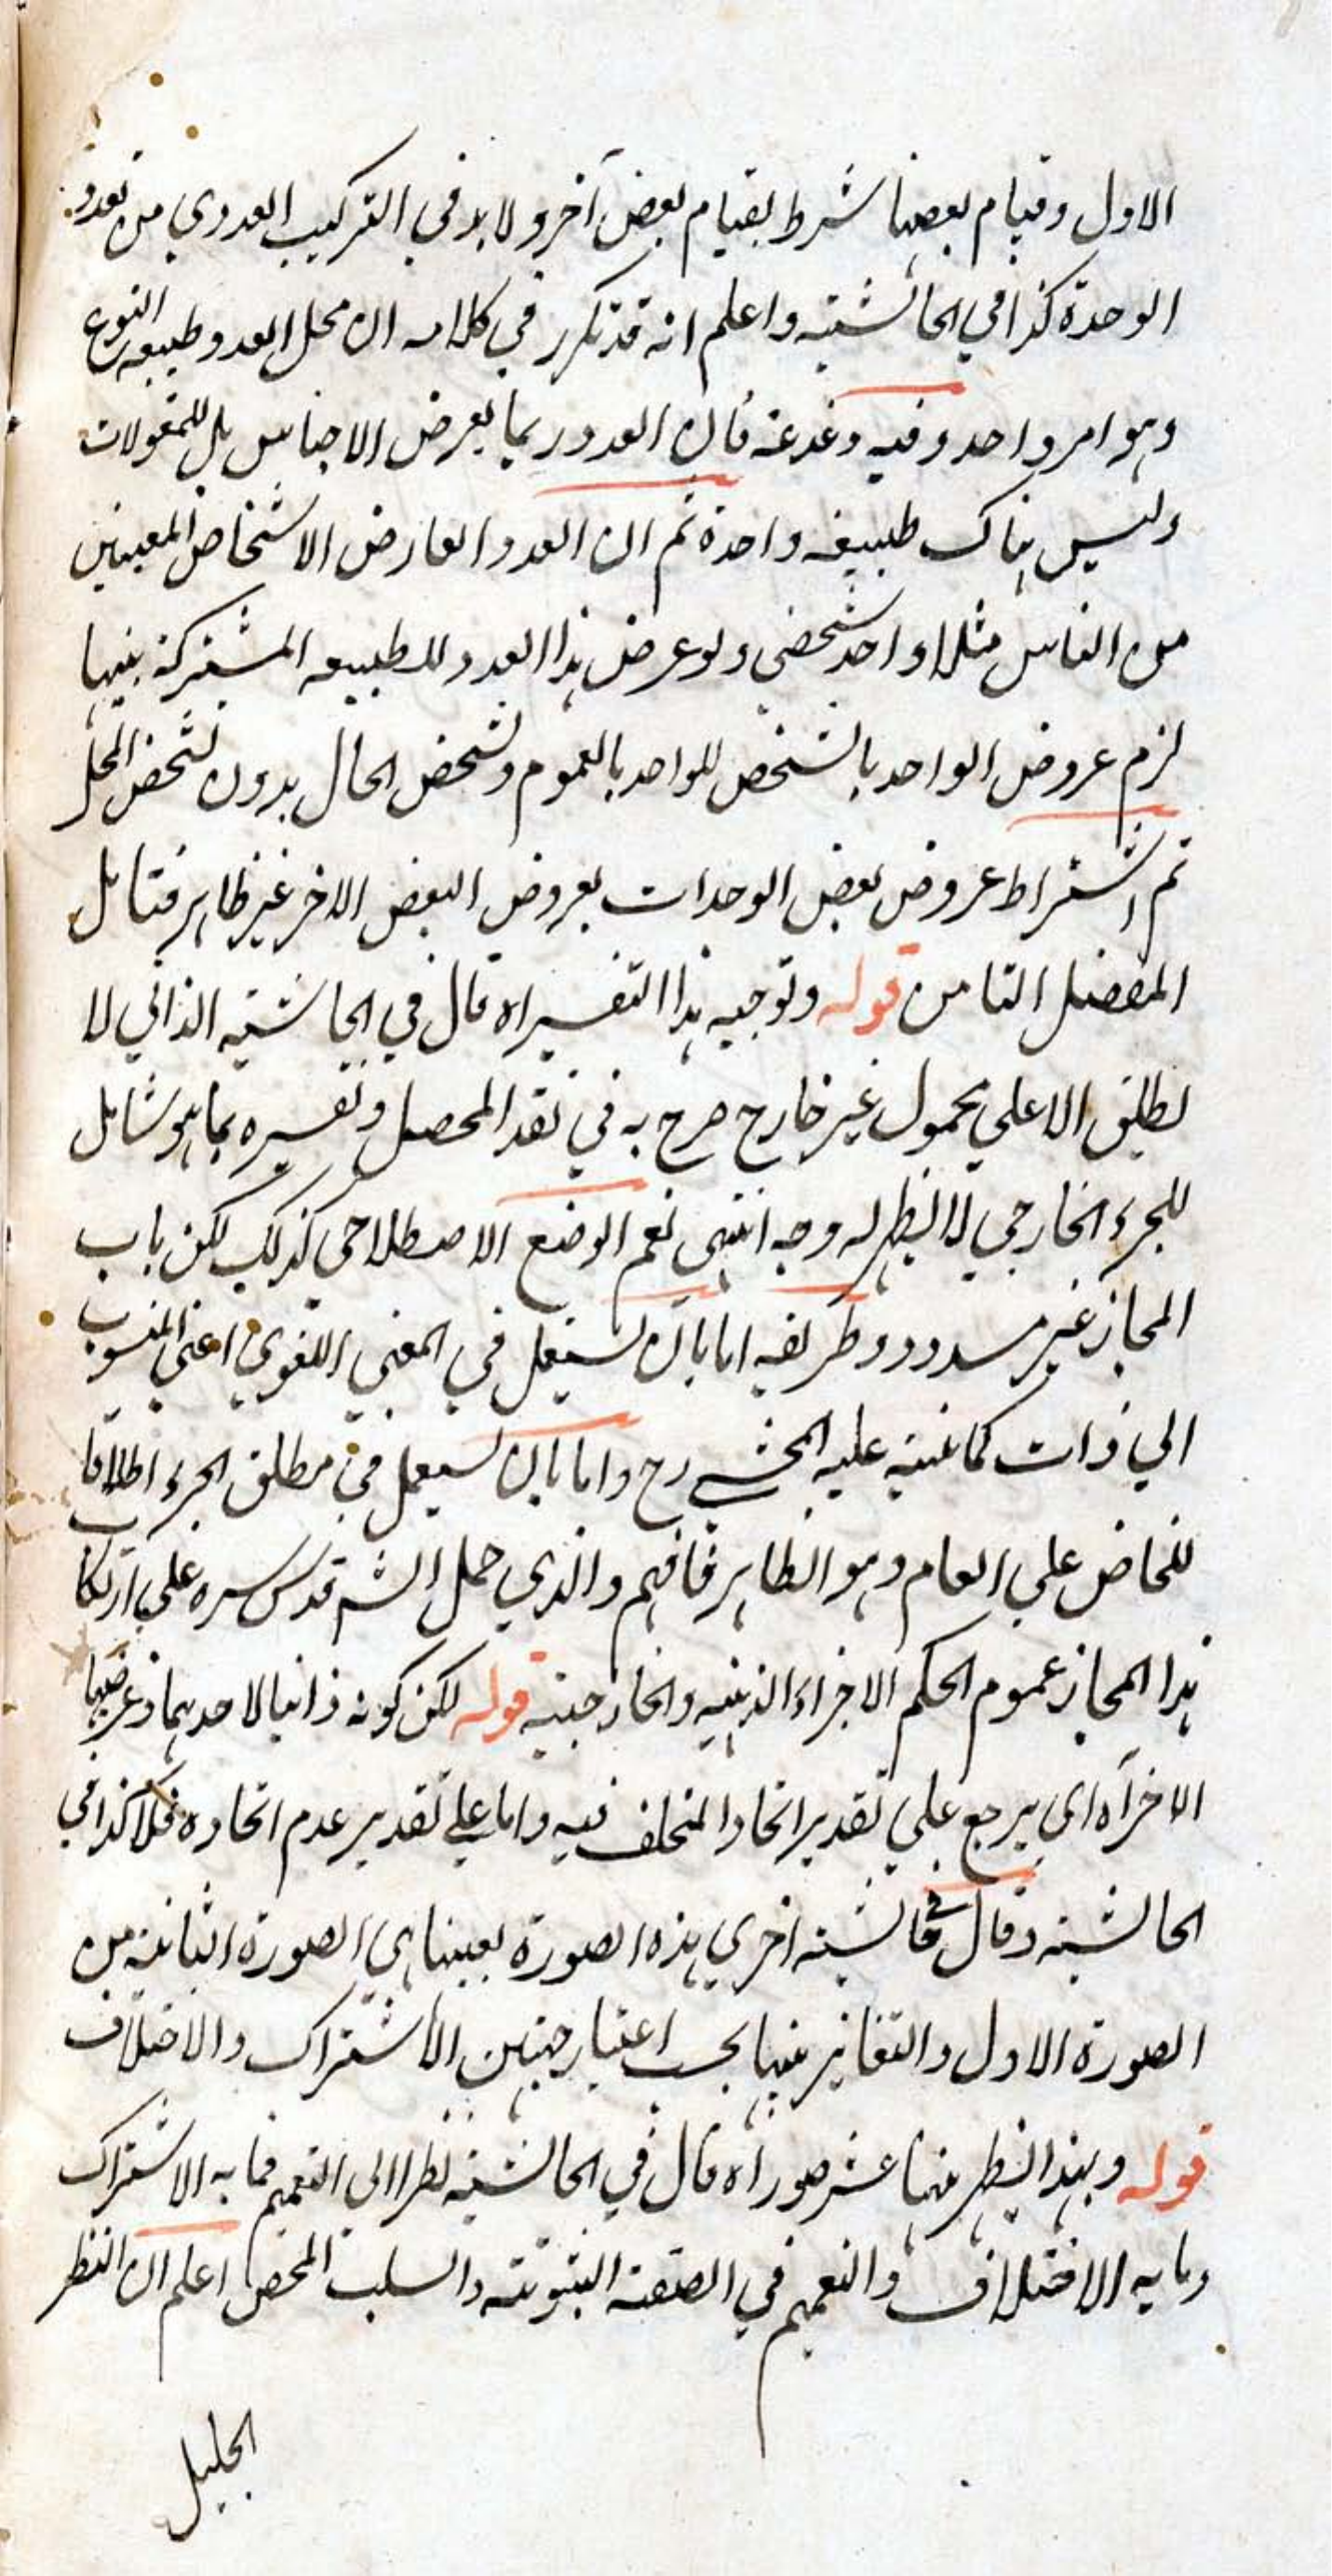 الاول وقيام بعضها شرط لقيام بعض آخر ولا بد في التركيب العددي من تعدد
الوحدة كذا في الحاشية واعلم انه قد تكرر في كلامه ان محل العدد طبيعة النوع
وهو امر واحد وفيه دغدغة فان العدد ربما يعرض الاجناس بل للمقولات
وليس هناك طبيعة واحدة ثم ان العدد العارض الاشخاص المعينين
من الناس مثلا واحد شخصي ولو عرض هذا العدد للطبيعة المشتركة بينها
لزم عروض الواحد بالشخص للواحد بالعموم وتشخص الحال بدون تشخص المحل
ثم اشتراط عروض بعض الوحدات بعروض البعض الاخر غير ظاهر فتامل
المفصل الثامن قوله وتوجيه هذا التفسير اه قال في الحاشية الذاتي لا
يطلق الا على محمول غير خارج صرح به في نقد المحصل وتفسيره بما هو شامل
للجزء الخارجي لا يظهر له وجه انتهى نعم الوضع الاصطلاحي كذلك لكن باب
المجاز غير مسدود وطريقه اما بان يستعمل في المعنى اللغوي اعني المنسوب
الي ذات كما نبه عليه المحشي رح واما بان يستعمل في مطلق الجزء اطلاقا
للخاص علي العام وهو الظاهر فافهم والذي حمل الشم قدس سره علي ارتكاب
هذا المجاز عموم الحكم الاجزاء الذهنيه والخارجية قوله لكن كونه ذاتيا لاحدهما وعرضيا
الاخر آه اي يرجع علي تقدير اتحاد المختلف فيه واما علي تقدير عدم اتحاده فلا كذا في
الحاشية وقال في حاشية اخري هذه الصورة بعينها هي الصورة الثانية من
الصورة الاول والتغاير بينها بحسب اعتبار جهتين الاشتراك والاختلاف
قوله وبهذا النظر ههنا عشر صور اه قال في الحاشية نظرا الى التعميم فما به الاشتراك
وما به الاختلاف والتعميم في الصفة الثبوتية والسلب المحض اعلم ان النظر
الجليل